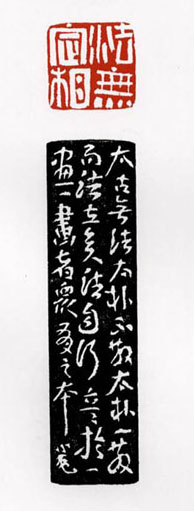 法無
定相
太古无法太朴不散太朴一散
而法立矣法自何立立於一
畫一畫者衆有之本